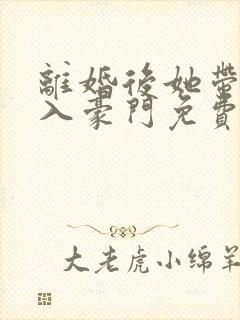 離婚後她帶
入豪門免費
大老虎小绵羊